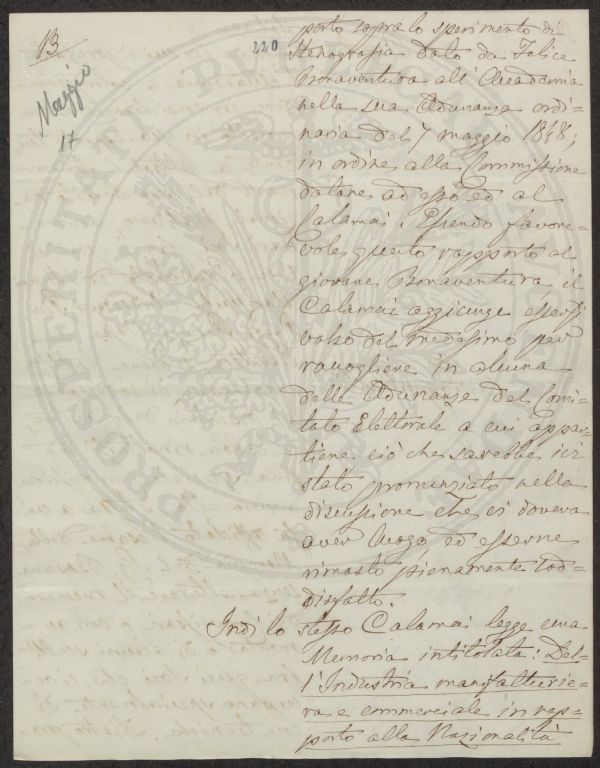 13
220
Maggio
17
porto sopra lo sperimento di
Stenografia dato da Felice
Bonaventura all'Accademia
nella sua Adunanza ordi=
naria del 7 maggio 1848;
in ordine alla Commissione
datane ad esso ed al
Calamai. Essendo favore=
vole questo rapporto al
giovane Bonaventura il
Calamai aggiunge essersi
valso del medesimo per
raccogliere in alcuna
delle Adunanze del Comi=
tato Elettorale a cui appar=
tiene ciò che sarebbe ivi
stato pronunziato nella
discussione che ci doveva
aver luogo ed esserne
rimasto pienamente sod=
disfatto.
Indi lo stesso Calamai legge una
Memoria intitolata: Del=
l'Industria manifatturie=
ra e commerciale in rap=
porto alla Nazionalità
PROSPERITATI PUBLICAE